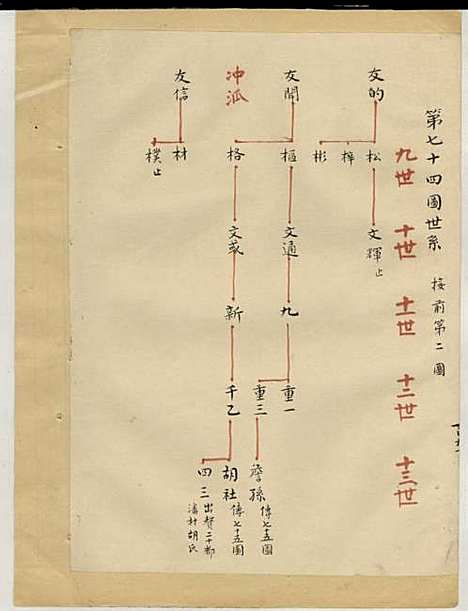 第七十四圖世系 接前第二圖
九世 十世 十一世 十二世 十三世
友的
松 文輝止
梓
彬
友聞
樞 文通 九 重一
重三 孫 傳七十五圖
冲派
格 文彧 新 千乙 胡社 傳七十五圖
四三 出贅二十都
潘村胡氏
友信
材
樸止